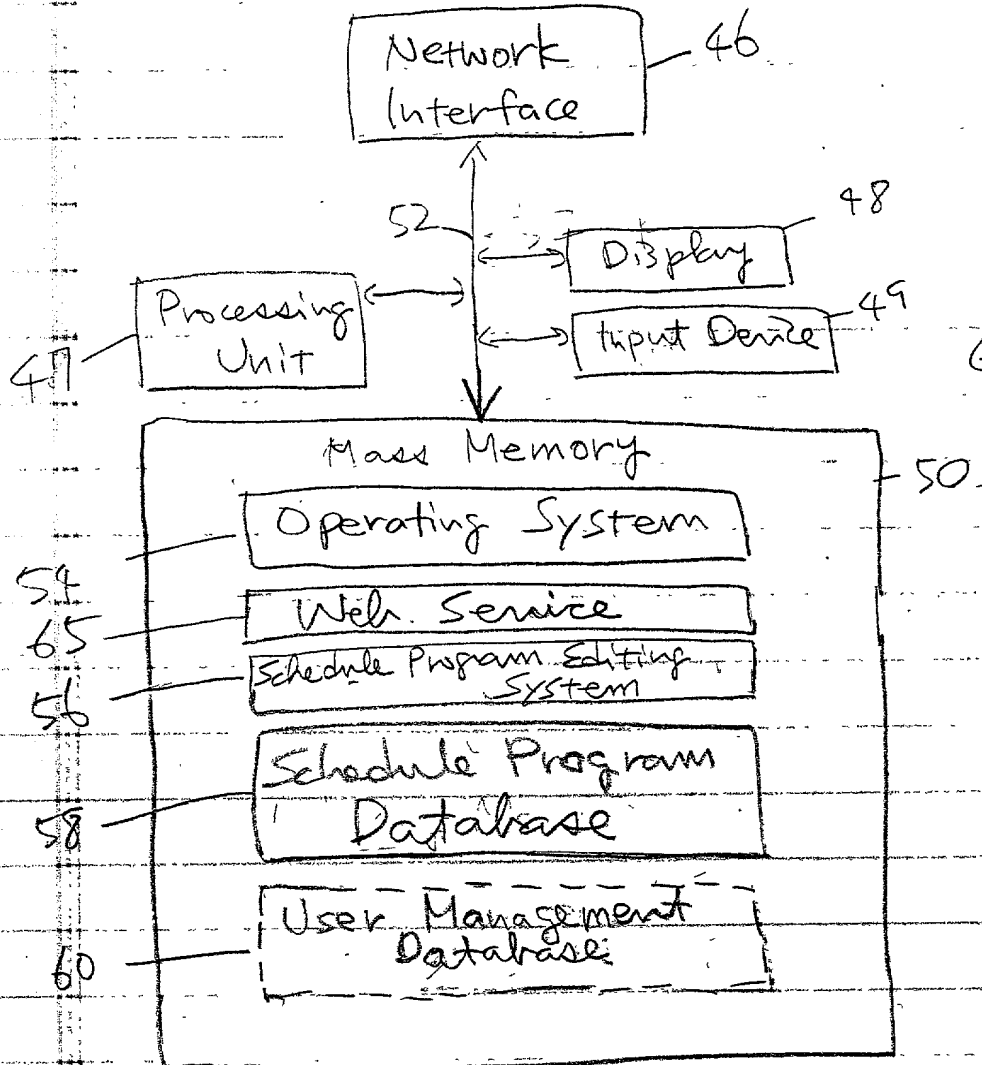 Network
Interface
46
52
48
Display
Processing
Unit
47
49
Input Device
Mass Memory
50
Operating System
54
Web Service
65
Schedule Program Editing
System
56
Schedule Program
Database
58
User Management
Database
60